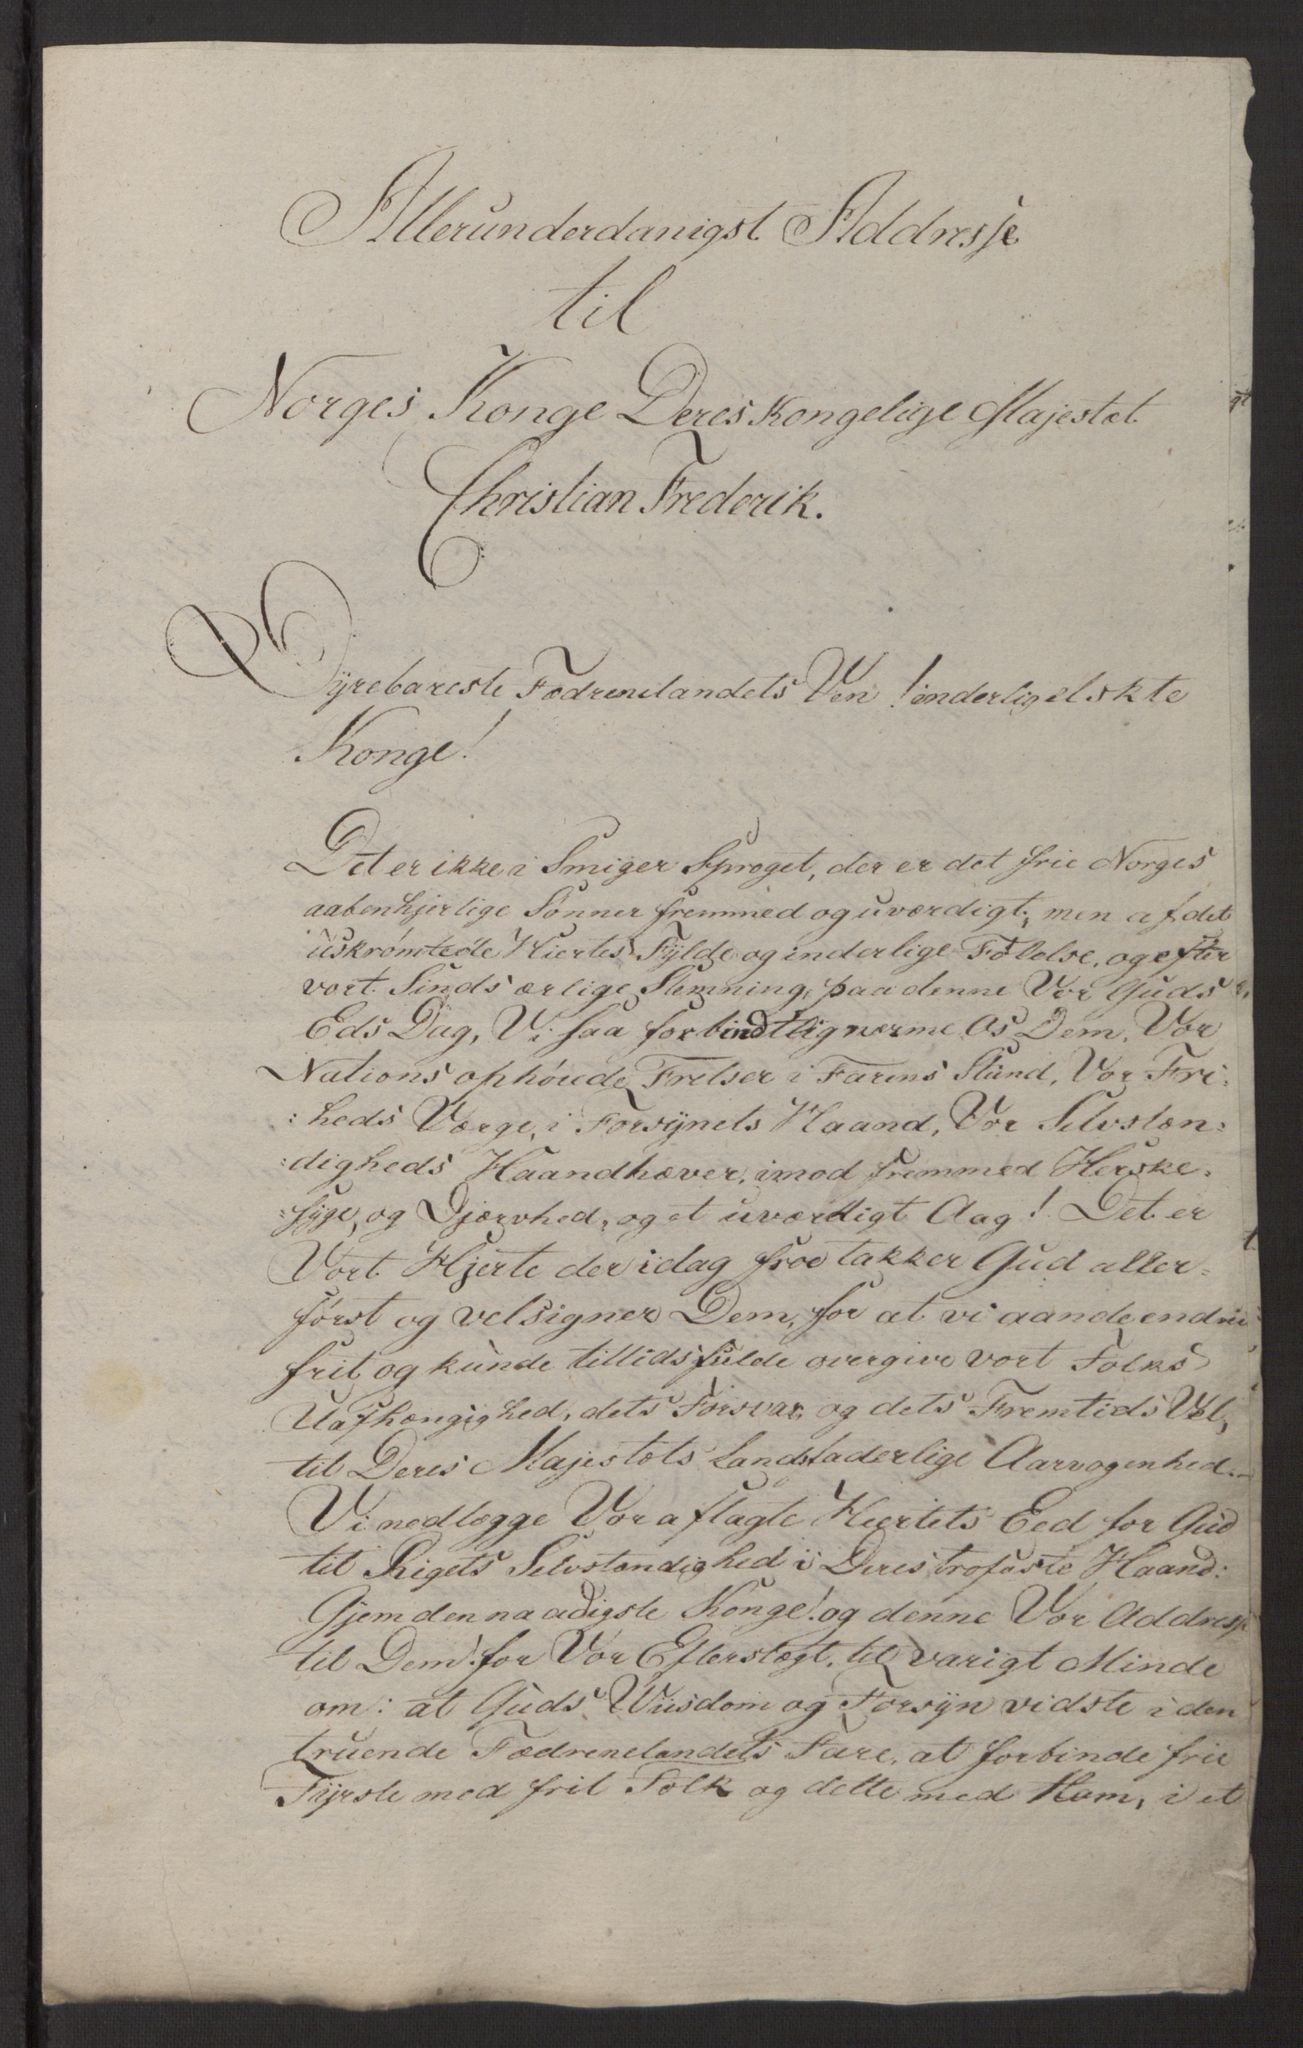 Allerunderdanigst Addresse
til
Norges Konge Deres Kongelige Majestæt
Christian Frederik.
Dÿrebareste Fædrenelandets Ven! inderligelskte
Konge!
Det er ikke i Smiger Sproget, der er det frie Norges
aabenhjertige Sønner fremmed og uværdigt, men af det
uskrømtede Hiertes Fÿlde og inderlige Følelse, og efter
vort Sinds ærlige Stemning, paa denne Vor Guds
Eds Dag, Vi saa forbindtlig nærme Os Dem, Vor
Nations ophøiede Frelser i Farens Stund, Vor Fri:
:heds Værge, i Forsÿnets Haand, Vor Selvstæn:
:digheds Haandhæver, imod fremmed Herske:
:sÿge, og Djærvhed, og et uværdigt Aag! Det er
Vort Hjerte der idag froe takker Gud aller:
først og velsigner Dem, for at vi aande endnu
frit og kunde tillidsfulde overgive vort Folks
Uafhængighed, dets Forsvar, og dets Fremtids Vel,
til Deres Majestæts Landsfaderlige Aarvogenhed.
Vi nedlægge Vor aflagte Hiertets Eed for Gud
til Rigets Selvstændighed i Deres trofaste Haand:
Gjem den naadigste Konge! og denne Vor Addresse
til Dem! for Vor Efterslægt, til varigt Minde
om: at Guds Wiisdom og Forsÿn vidste i den
truende Fædrenelandets Fare, at forbinde frie
Fÿrste med frit Folk og dette med Ham, i et